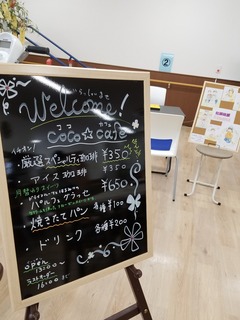 いらっしゃいませ
Welcome!
ココ カフェ
coco☆cafe
イチオシ!
厳選スペシャルティ珈琲 ¥350
アイス珈琲 ¥350
月替わりスイーツ
パルフェグラッセ ¥650
・焼きたてパン 各種¥100
・ドリンク 各種¥200
open
13:00〜
ラストオーダー
16:00
②